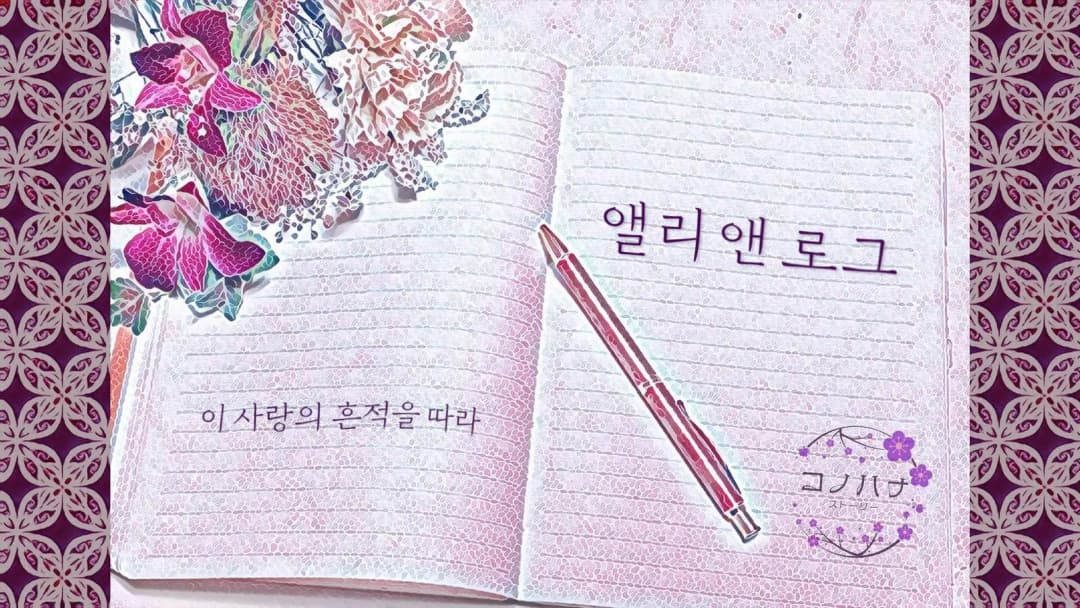 앨리앤 로그
이 사랑의 흔적을 따라
コノハナ
ストーリー